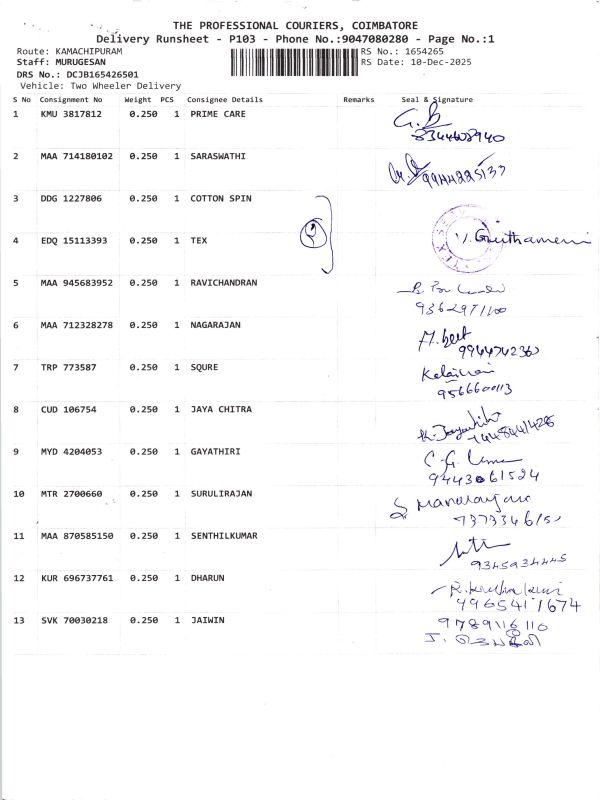 THE PROFESSIONAL COURIERS, COIMBATORE
Delivery Runsheet - P103 - Phone No.:9047080280 - Page No.:1
Route: KAMACHIPURAM RS No.: 1654265
Staff: MURUGESAN RS Date: 10-Dec-2025
DRS No.: DCJB165426501
Vehicle: Two Wheeler Delivery
S No Consignment No Weight PCS Consignee Details Remarks Seal & Signature
1 KMU 3817812 0.250 1 PRIME CARE
2 MAA 714180102 0.250 1 SARASWATHI
3 DDG 1227806 0.250 1 COTTON SPIN
4 EDQ 15113393 0.250 1 TEX
5 MAA 945683952 0.250 1 RAVICHANDRAN
6 MAA 712328278 0.250 1 NAGARAJAN
7 TRP 773587 0.250 1 SQURE
9566600113
8 CUD 106754 0.250 1 JAYA CHITRA
9 MYD 4204053 0.250 1 GAYATHIRI
9443061524
10 MTR 2700660 0.250 1 SURULIRAJAN
11 MAA 870585150 0.250 1 SENTHILKUMAR
9345934445
12 KUR 696737761 0.250 1 DHARUN
13 SVK 70030218 0.250 1 JAIWIN
9789116110